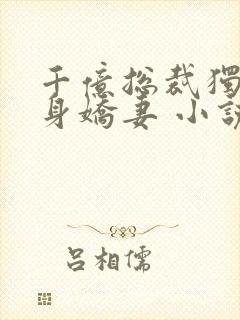 千億總裁獨
身嬌妻 小說
呂相儒